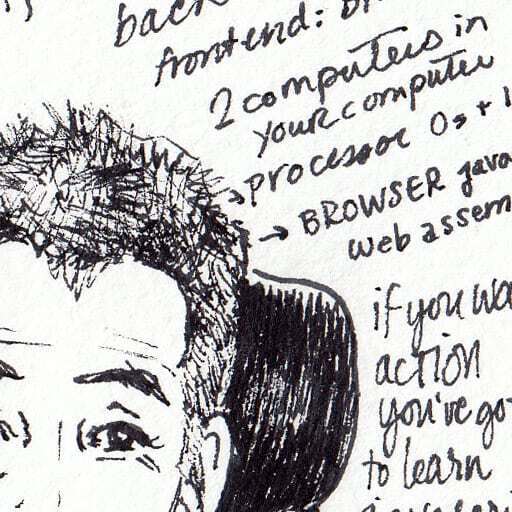 back
frontend:
2 computers in
your computer
→ processor 0s + 1
→ BROWSER java
web assem
if you wa
action
you've go
to learn